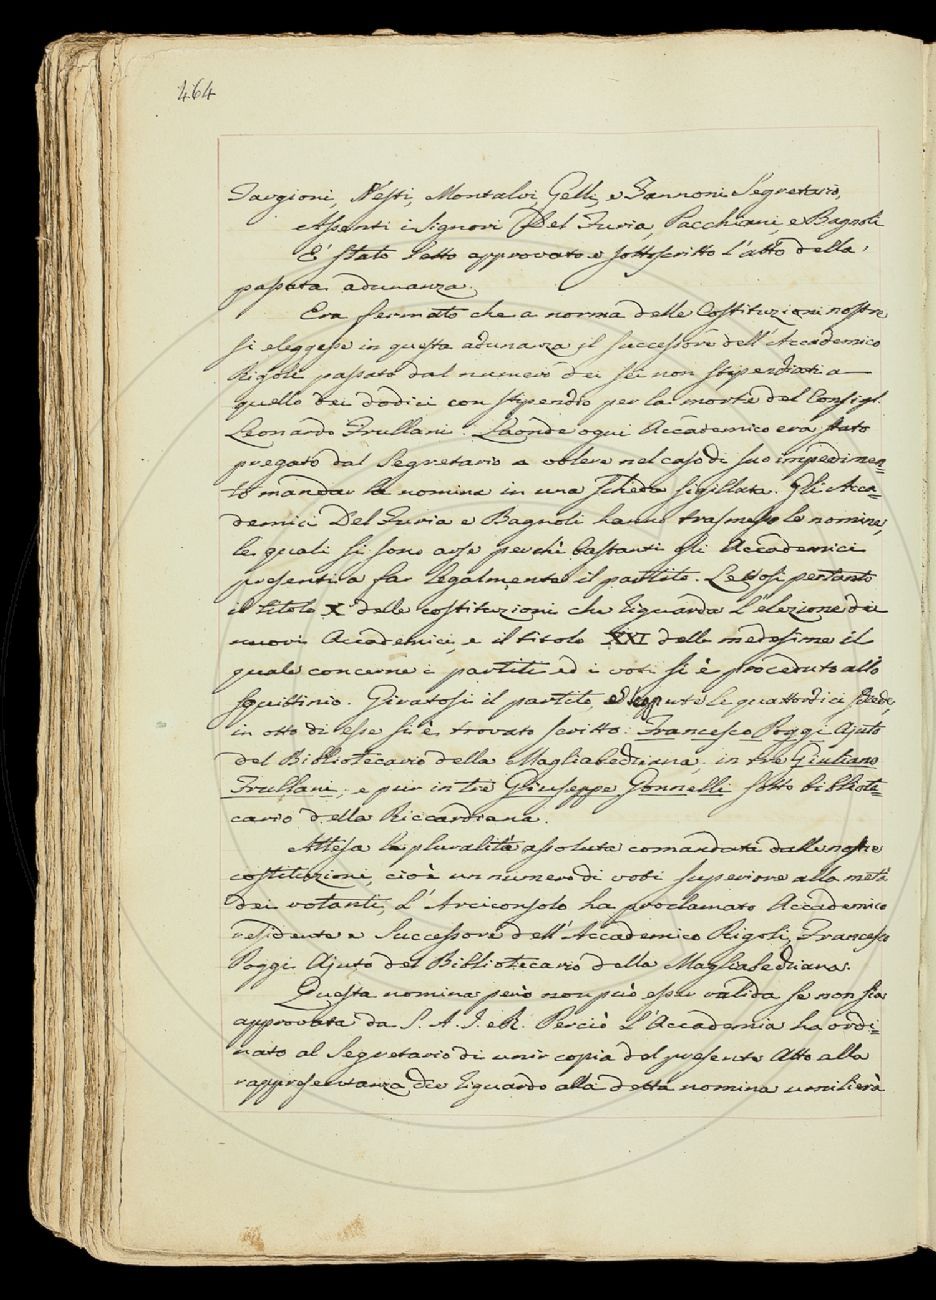 464
Targioni, Nesti, Montalvi, Gelli, e Zannoni Segretario,
Assenti i Signori Del Furia, Pacchiani, e Bagnoli
È stato letto approvato e sottoscritto l'atto della
passata adunanza.
Era fermato che a norma delle Costituzioni nostre
si eleggesse in questa adunanza il successore dell'Accademico
Rigoli passato dal numero dei sei non stipendiati a
quello dei dodici con stipendio per la morte del Consigl.
Leonardo Frullani. Laonde ogni Accademico era stato
pregato dal Segretario a volere nel caso di suo impedimen=
to mandar la nomina in una scheda sigillata. Gli Acca=
demici Del Furia e Bagnoli hanno trasmesso le nomine,
le quali si sono arse perchè bastanti gli Accademici
presenti a far legalmente il partito. Lettosi pertanto
il titolo X delle costituzioni che riguarda l'elezione dei
nuovi Accademici, e il titolo XXI delle medesime il
quale concerne i partiti ed i voti si è proceduto allo
squittinio. Giratosi il partito, e le quattordici schede,
in otto di esse si è trovato scritto: Francesco Poggi Ajuto
del Bibliotecario della Magliabechiana; in tre Giuliano
Frullani; e pur in tre Giuseppe Gonnelli sotto bibliote=
cario della Riccardiana.
Attesa la pluralità assoluta comandata dalle nostre
costituzioni, cioè un numero di voti superiore alla metà
dei votanti, l'Arciconsolo ha proclamato Accademico
residente e Successore dell'Accademico Rigoli, Francesco
Poggi Ajuto del Bibliotecario della Magliabechiana.
Questa nomina però non può esser valida se non sia
approvata da S. A. I. e R. Perciò l'Accademia ha ordi=
nato al Segretario di unir copia del presente Atto alla
rappresentanza che riguardo alla detta nomina umilierà